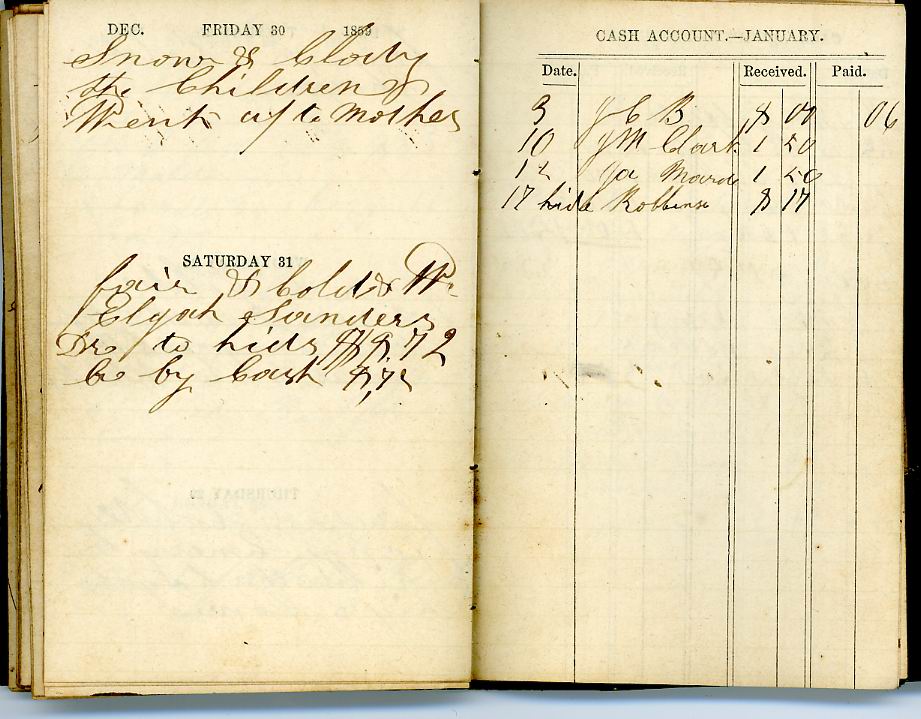 DEC. FRIDAY 30 1859
Snow & Clody
the Children &
Went up to Mothes
SATURDAY 31
fair & Cold & W
Elijah Sanders
Dr to hids $9,72
Cr by Cash 9,72
CASH ACCOUNT.—JANUARY.
Date. Received. Paid.
3 J C B 8 00 06
10 J M Clark 1 50
12 Ja Mard 1 50
17 hide Robbens 8 17